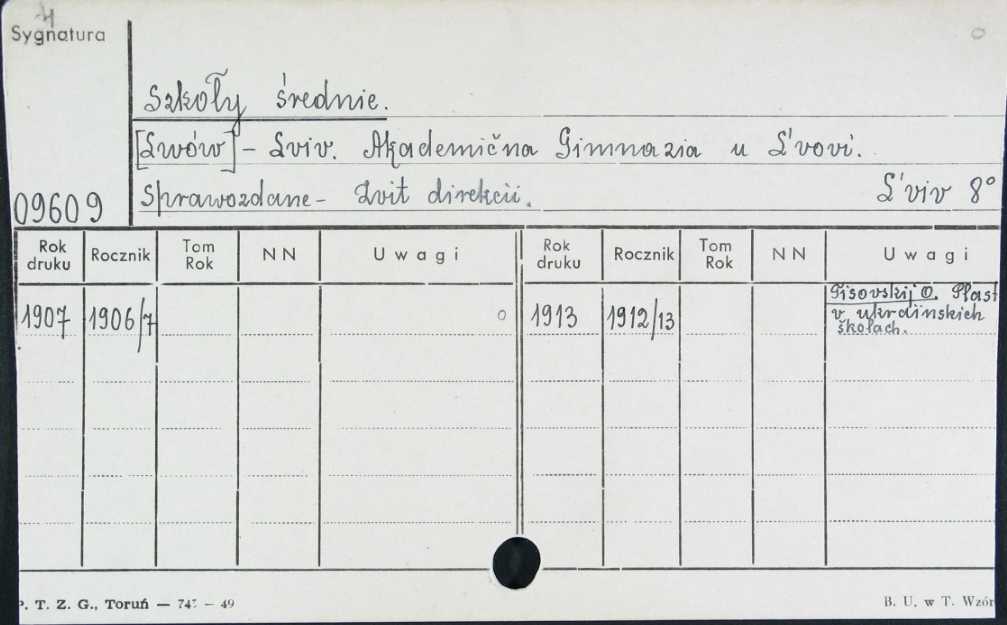 Sygnatura
Szkoły średnie.
[Lwów] - Lviv. Akademična Gimnazia u L'vovi.
Sprawozdane - Zvit direkcii. L'viv 8°
09609
Rok druku Rocznik Tom Rok N N Uwagi Rok druku Rocznik Tom Rok N N Uwagi
1907 1906/7 1913 1912/13 Pisovskij O. Plast
v ukrainskich
školach.
P. T. Z. G., Toruń — 745 — 49 B. U. w T. Wzór